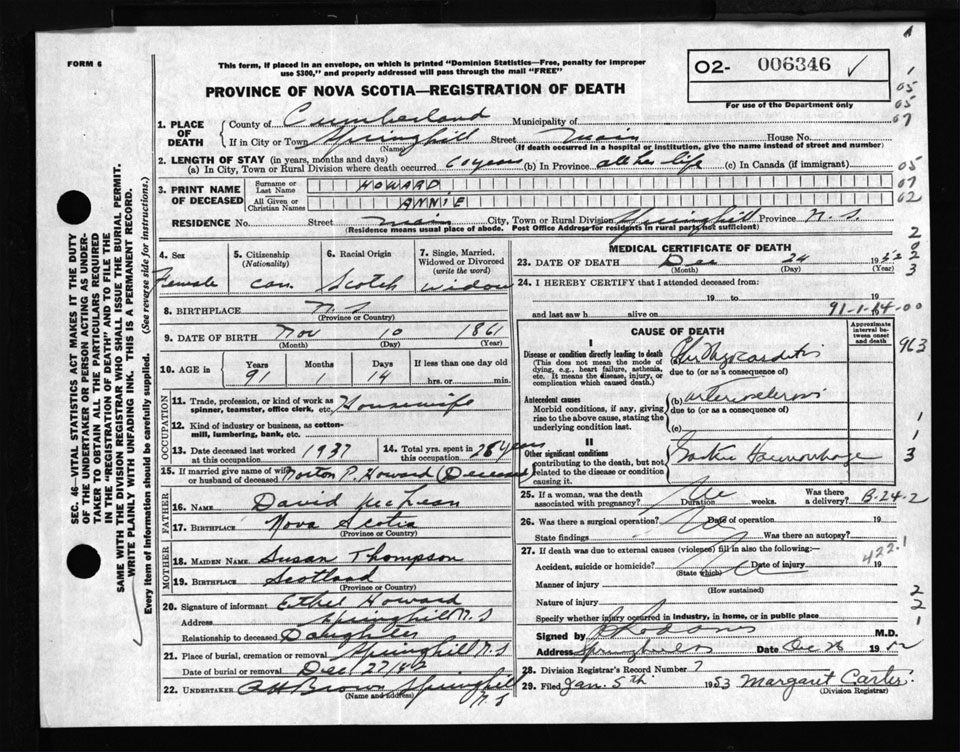 FORM 6
This form, if placed in an envelope, on which is printed "Dominion Statistics—Free, penalty for improper
use $300," and properly addressed will pass through the mail "FREE"
O2- 006346 ✓
PROVINCE OF NOVA SCOTIA—REGISTRATION OF DEATH
For use of the Department only
1. PLACE OF DEATH
County of Cumberland Municipality of
If in City or Town Springhill Street Main House No.
(Name) (If death occurred in a hospital or institution, give the name instead of street and number)
2. LENGTH OF STAY (in years, months and days)
(a) In City, Town or Rural Division where death occurred 60 years (b) In Province all her life (c) In Canada (if immigrant)
3. PRINT NAME OF DECEASED
Surname or Last Name HOWARD
All Given or Christian Names ANNIE
RESIDENCE No. Street Main City, Town or Rural Division Springhill Province N.S.
(Residence means usual place of abode. Post Office Address for residents in rural parts not sufficient)
4. Sex
Female
5. Citizenship
(Nationality)
Can
6. Racial Origin
Scotch
7. Single, Married,
Widowed or Divorced
(write the word)
Widow
8. BIRTHPLACE N.S
(Province or Country)
9. DATE OF BIRTH Nov 10 1861
(Month) (Day) (Year)
10. AGE in
Years Months Days If less than one day old
91 1 14 hrs. or min.
OCCUPATION
11. Trade, profession, or kind of work as
spinner, teamster, office clerk, etc. Housewife
12. Kind of industry or business, as cotton-
mill, lumbering, bank, etc.
13. Date deceased last worked at this occupation 1937
14. Total yrs. spent in this occupation years
15. If married give name of wife
or husband of deceased Norton P. Howard (Deceased)
FATHER
16. NAME David
17. BIRTHPLACE Nova Scotia
(Province or Country)
MOTHER
18. MAIDEN NAME Susan Thompson
19. BIRTHPLACE Scotland
(Province or Country)
20. Signature of informant Ethel Howard
Address Springhill N.S
Relationship to deceased Daughter
21. Place of burial, cremation or removal Springhill N.S
Date of burial or removal Dec 27/52
22. UNDERTAKER Brown Springhill
(Name and address) N.S
MEDICAL CERTIFICATE OF DEATH
23. DATE OF DEATH Dec 24 1952
(Month) (Day) (Year)
24. I HEREBY CERTIFY that I attended deceased from:
19 to 19
and last saw h alive on
91-1-14-00
CAUSE OF DEATH
Approximate
interval be-
tween onset
and death
I
Disease or condition directly leading to death
(This does not mean the mode of
dying, e.g., heart failure, asthenia,
etc. It means the disease, injury, or
complication which caused death.)
(a) Myocarditis
due to (or as a consequence of)
Antecedent causes
Morbid conditions, if any, giving
rise to the above cause, stating the
underlying condition last.
(b) Arteriosclerosis
due to (or as a consequence of)
(c)
II
Other significant conditions
contributing to the death, but not
related to the disease or condition
causing it.
Haemorrhage
25. If a woman, was the death
associated with pregnancy? No Duration weeks. Was there a delivery?
B-24-2
26. Was there a surgical operation? No Date of operation 19
State findings Was there an autopsy?
27. If death was due to external causes (violence) fill in also the following:—
422.1
Accident, suicide or homicide? No Date of injury 19
(State which)
Manner of injury
(How sustained)
Nature of injury
Specify whether injury occurred in industry, in home, or in public place
Signed by M.D.
Address Springhill Date Dec 26 1952
28. Division Registrar's Record Number 7
29. Filed Jan. 5th 1953 Margaret Carter.
(Division Registrar)
SEC. 46—VITAL STATISTICS ACT MAKES IT THE DUTY
OF THE UNDERTAKER OR PERSON ACTING AS UNDER-
TAKER TO OBTAIN ALL THE PARTICULARS REQUIRED
IN THE "REGISTRATION OF DEATH" AND TO FILE THE
SAME WITH THE DIVISION REGISTRAR WHO SHALL ISSUE THE BURIAL PERMIT.
WRITE PLAINLY WITH UNFADING INK. THIS IS A PERMANENT RECORD.
Every item of information should be carefully supplied. (See reverse side for instructions.)
1
05
05
07
05
07
02
2
0
2
3
963
1
1
3
2
2
1